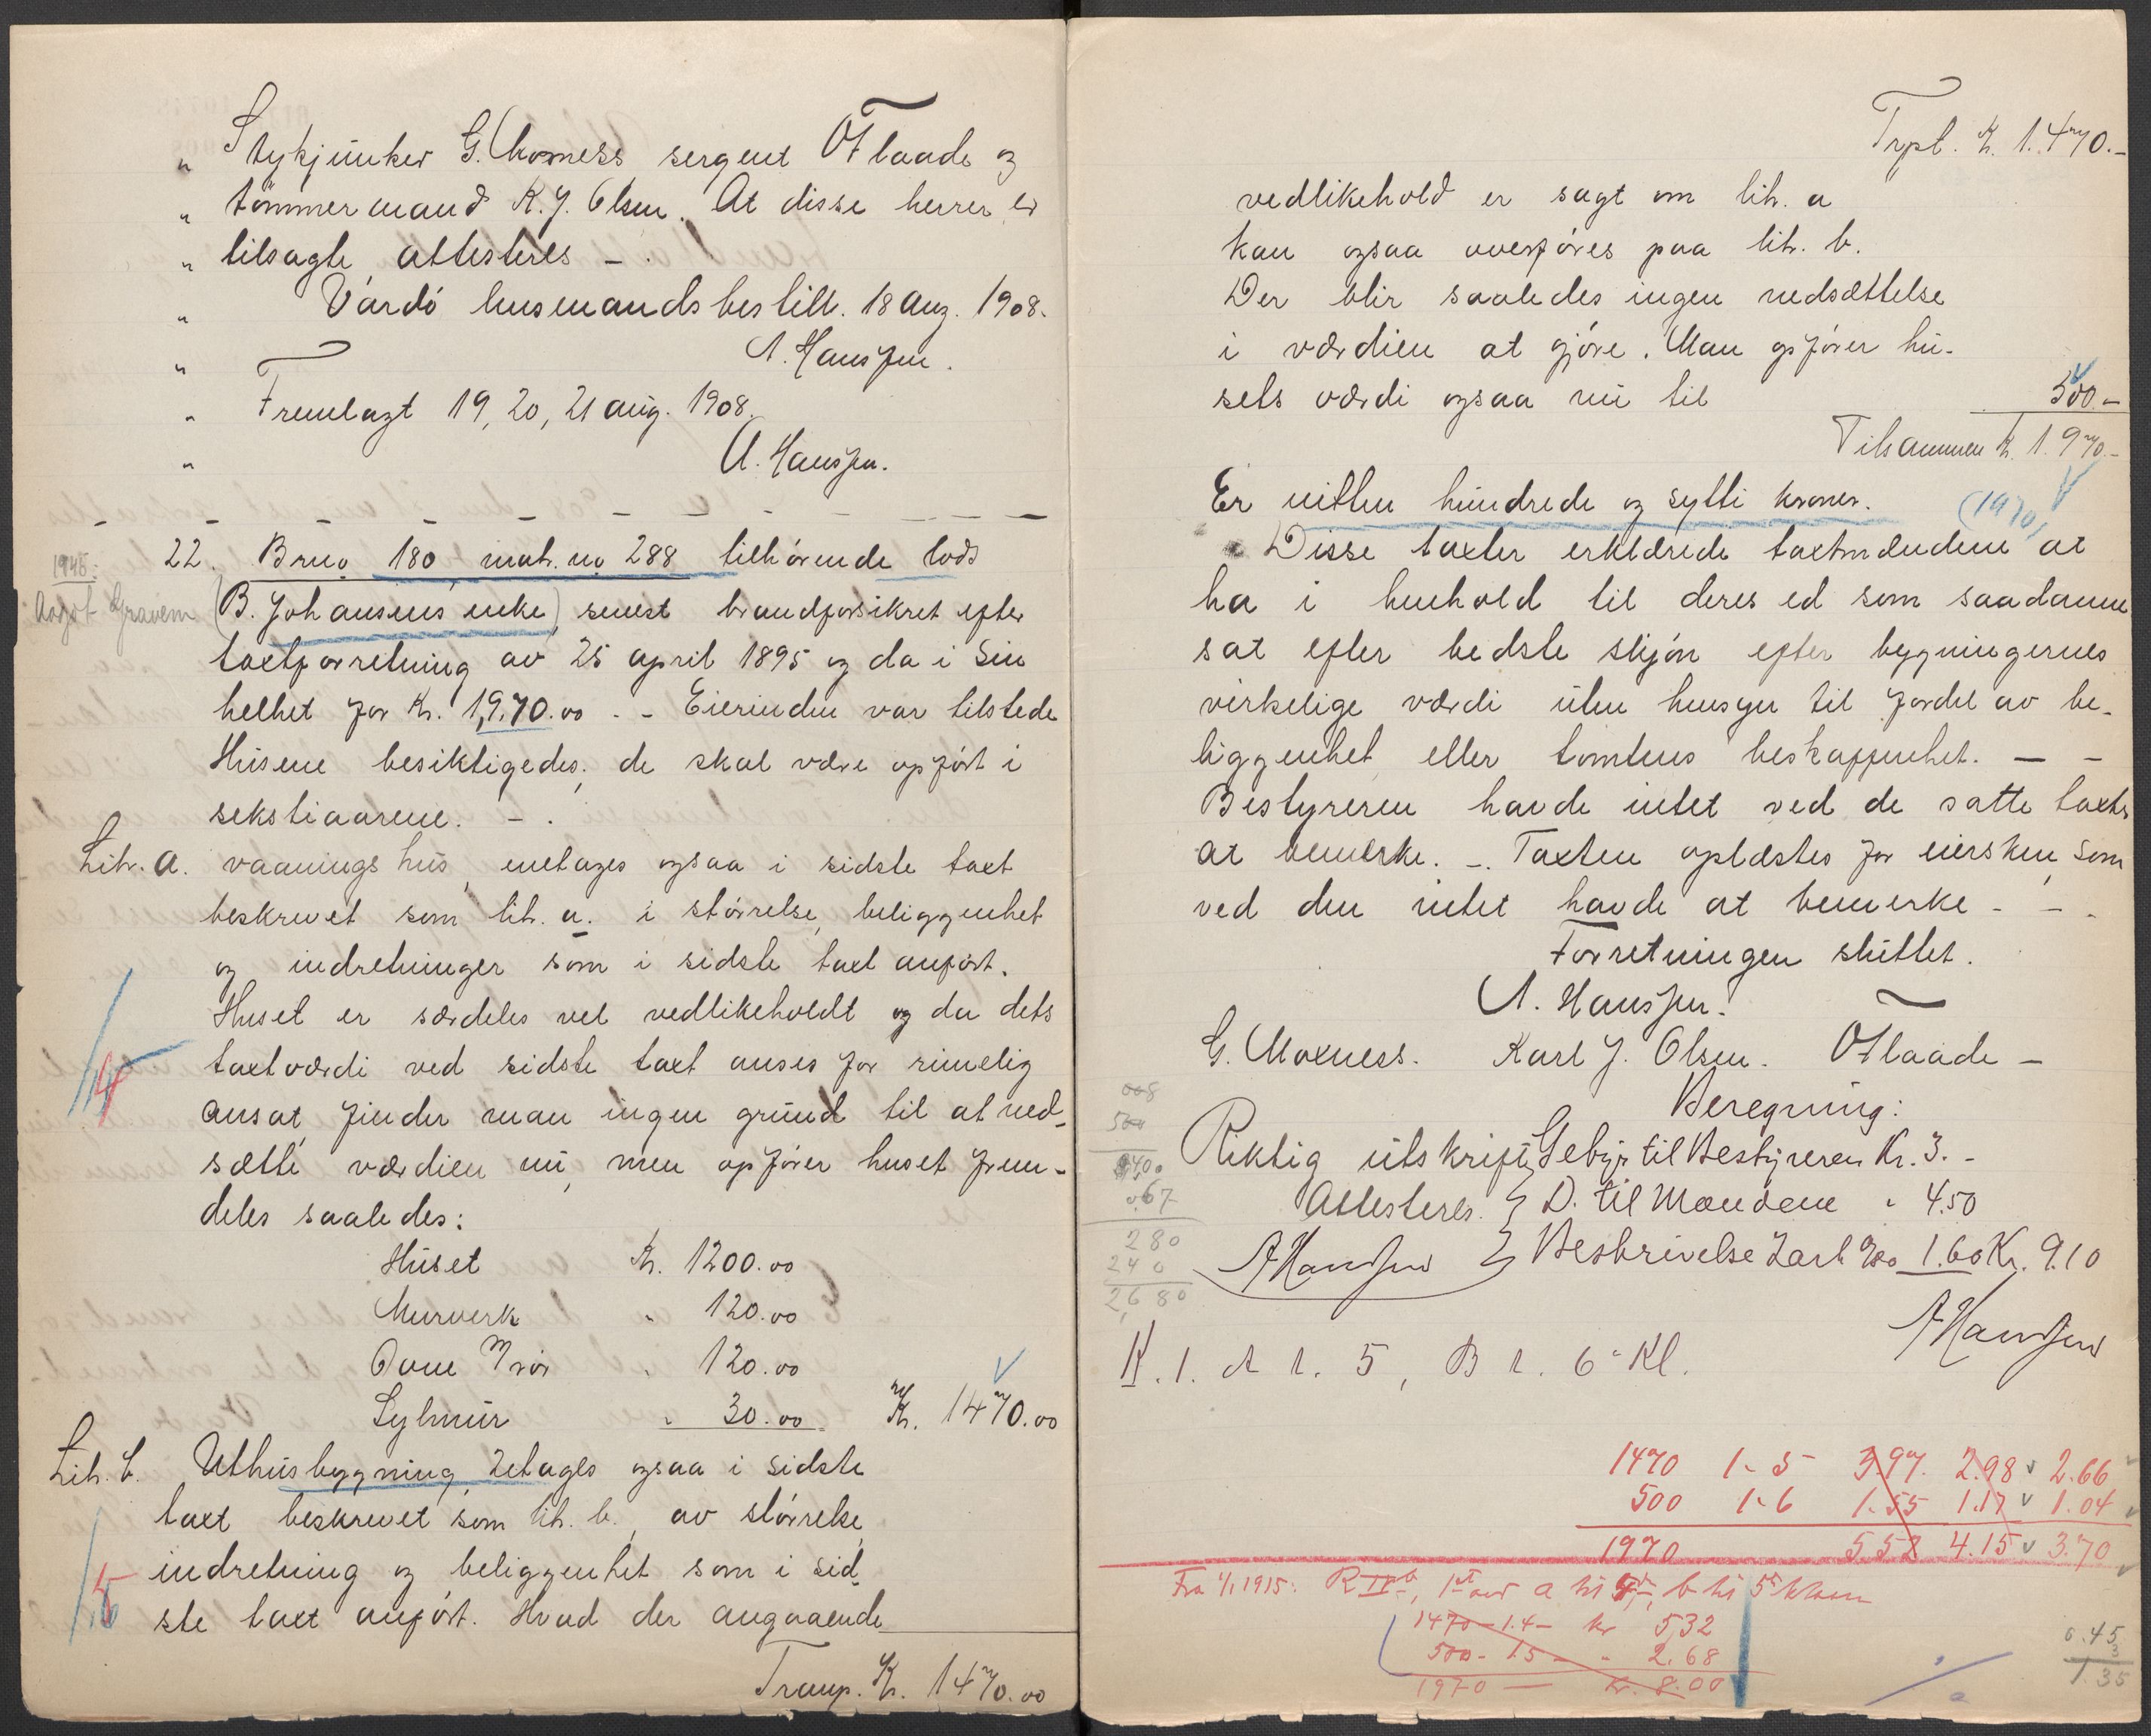 " Stykjunker G. Moxness sergent O Flaade og
" tömmermand K. J. Olsen. At disse herrer er
" tilsagte attesteres – .
" Vardö lensmandsbestill. 18 aug. 1908.
" A. Hanssen.
" Fremlagt 19, 20, 21 aug. 1908.
" A. Hanssen.
22. Brno 180, matr. no 288 tilhörende lods
1945:
Aagot Gravem
(B. Johansens enke) senest brandforsikret efter
taxtforretning av 25 april 1895 og da i sin
helhet for Kr. 1,970.00 . – Eierinden var tilstede
Husene besiktigedes, de skal være opfört i
sekstiaarene. – .
Litr. a. vaaningshus, enetages ogsaa i sidste taxt
beskrevet som litr. a. i störrelse, beliggenhet
og indretninger som i sidste taxt anfört.
Huset er særdeles vel vedlikeholdt og da dets
taxtværdi ved sidste taxt anses for rimelig
ansat, finder man ingen grund til at ned-
sætte værdien nu, men opförer huset frem-
deles saaledes:
Huset Kr. 1200.00
Murverk " 120.00
Ovne m rör " 120.00
Sylmur " 30.00 Kr. 1470.00
Litr. b. Uthusbygning, 2etages ogsaa i sidste
taxt beskrevet som litr. b., av störrelse,
indretning og beliggenhet som i sid-
ste taxt anfört. Hvad der angaaende
Transp. Kr. 1470.00
Trpt. Kr. 1.470.–
vedlikehold er sagt om litr. a
kan ogsaa overföres paa litr. b.
Der blir saaledes ingen nedsættelse
i værdien at gjöre. Man opförer hu-
sets værdi ogsaa nu til 500.–
Tilsammen Kr. 1.970.–
Er nitten hundrede og sytti kroner. (1970)
Disse taxter erklærede taxtmændene at
ha i henhold til deres ed som saadanne
sat efter bedste skjön efter bygningernes
virkelige værdi uten hensyn til fordel av be-
liggenhet eller tomtens beskaffenhet. – –
Bestyreren havde intet ved de satte taxter
at bemerke. –. Taxten oplæstes for eiersken, som
ved den intet havde at bemerke – – .
Forretningen sluttet.
A. Hanssen.
G. Moxness. Karl J. Olsen. O Flaade –
Beregning:
Riktig utskrift Gebyr til Bestyreren Kr. 3. –
Attesteres. D. til Mændene " 4.50
AHanssen Beskrivelse 2ark 1.60 Kr. 9.10
AHanssen
K. 1. A 1. 5, B 1. 6 Kl.
280
240
2,680
1470 1-5 3.97. 2.98 2.66
500 1-6 1.55 1.17 1.04
1970 5.52 4.15 3.70
Fra 1/1 1915:
1470 – 1.4 – kr 5,32
500 – 1.5 – " 2.68
1970 — kr. 8.00
0.45
3
1.35